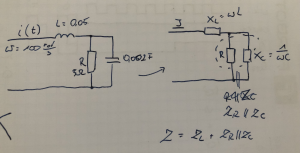 i(t)
L = 0.05
ω = 100 rad/s
R
5Ω
0.002F
I
X_L = ωL
R
X_C = 1/ωC
R||Z_C
Z_R||Z_C
Z = Z_L + Z_R||Z_C